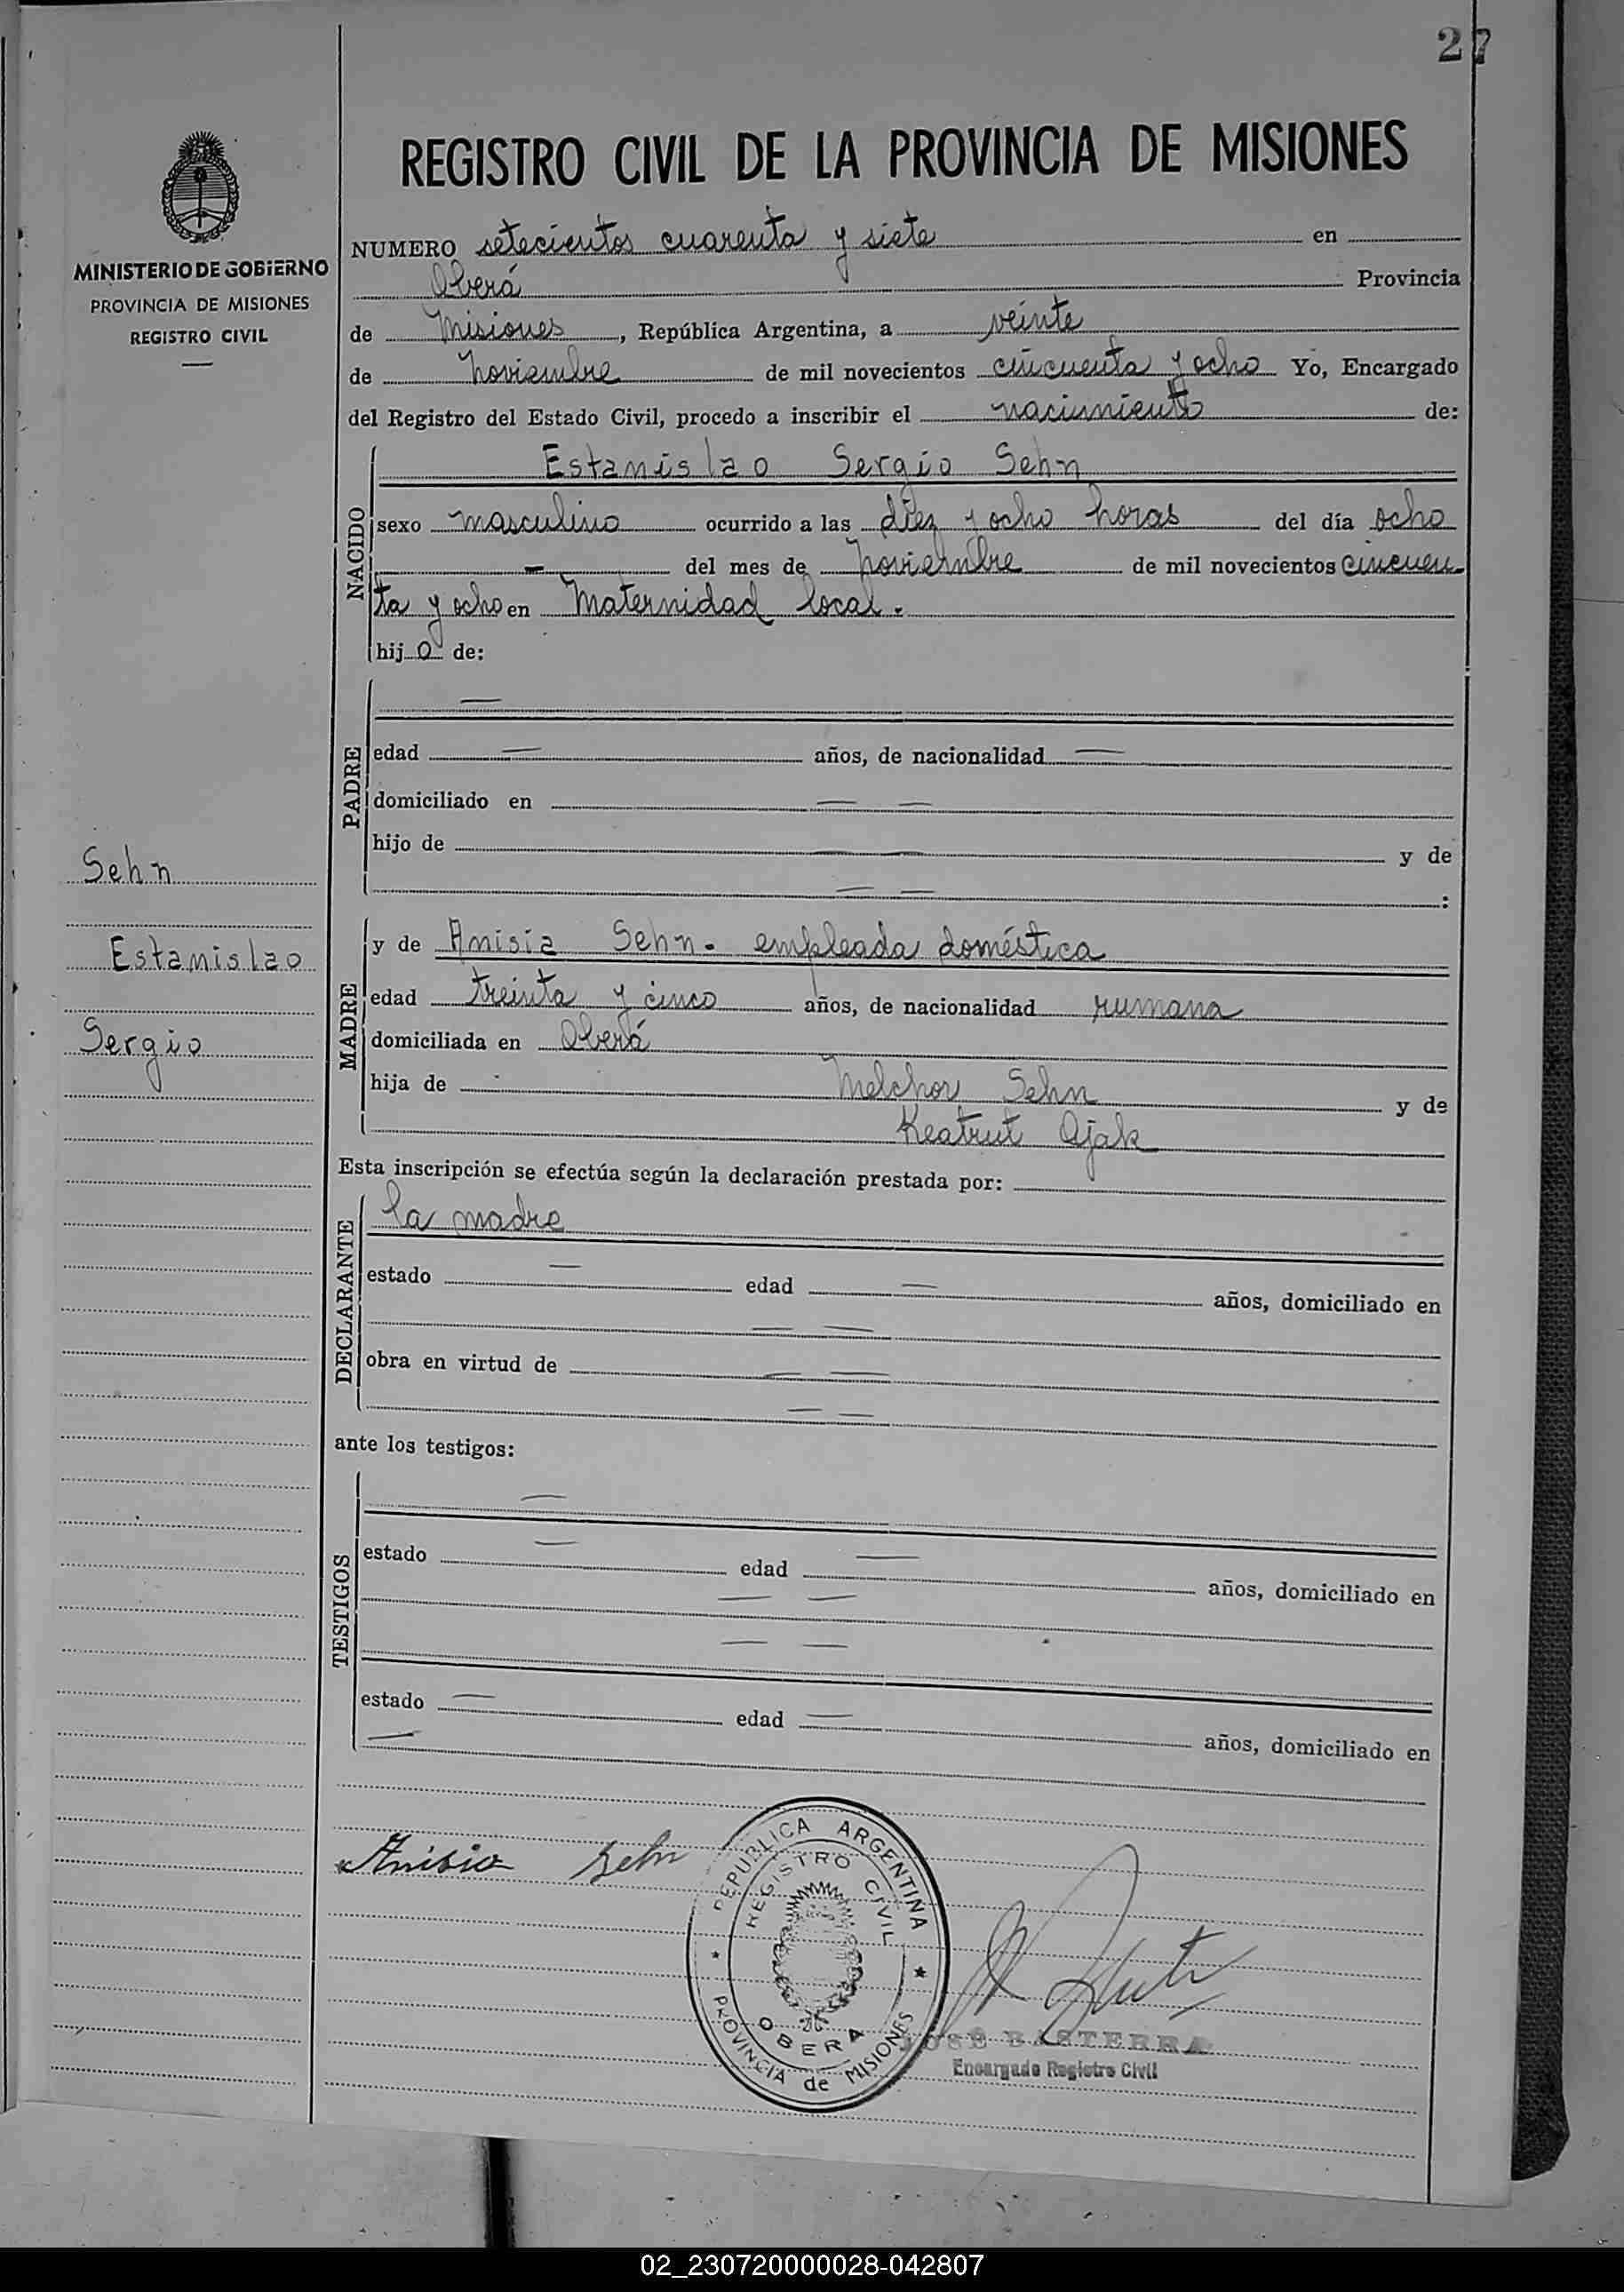 27
REGISTRO CIVIL DE LA PROVINCIA DE MISIONES
MINISTERIO DE GOBIERNO
PROVINCIA DE MISIONES
REGISTRO CIVIL
NUMERO setecientos cuarenta y siete en
Oberá Provincia
de Misiones, República Argentina, a veinte
de Noviembre de mil novecientos cincuenta y ocho Yo, Encargado
del Registro del Estado Civil, procedo a inscribir el nacimiento de:
NACIDO
Estanislao Sergio Sehn
sexo masculino ocurrido a las diez y ocho horas del día ocho
— del mes de Noviembre de mil novecientos cincuen
ta y ocho en Maternidad local.
hijo de:
PADRE
—
edad — años, de nacionalidad —
domiciliado en — —
hijo de — — y de
— — :
Sehn
Estanislao
Sergio
MADRE
y de Anisia Sehn - empleada doméstica
edad treinta y cinco años, de nacionalidad rumana
domiciliada en Oberá
hija de Melchor Sehn y de
Keatrut Ajak
Esta inscripción se efectúa según la declaración prestada por:
DECLARANTE
la madre
estado — edad — años, domiciliado en
— —
obra en virtud de — —
— —
ante los testigos:
TESTIGOS
—
estado — edad — años, domiciliado en
— —
— —
estado — edad — años, domiciliado en
—
Anisia Sehn
REPUBLICA ARGENTINA
REGISTRO CIVIL
OBERA
PROVINCIA de MISIONES
JOSÉ BASTERRA
Encargado Registro Civil
02_230720000028-042807